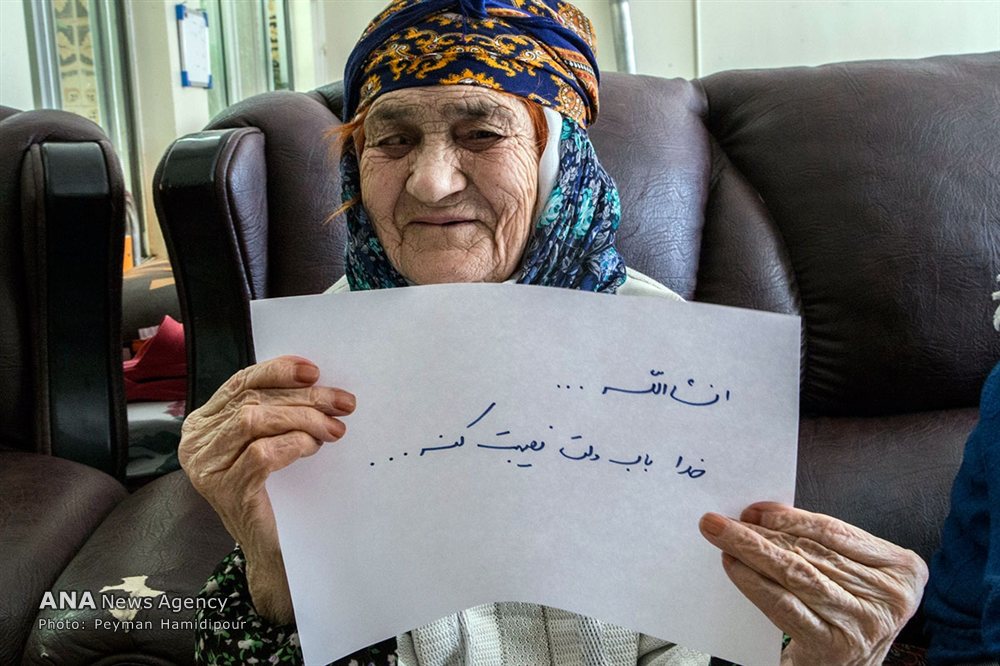 انشاالله ...
خدا باب دلت نصیبت کنه ...
ANA News Agency
Photo: Peyman Hamidipour